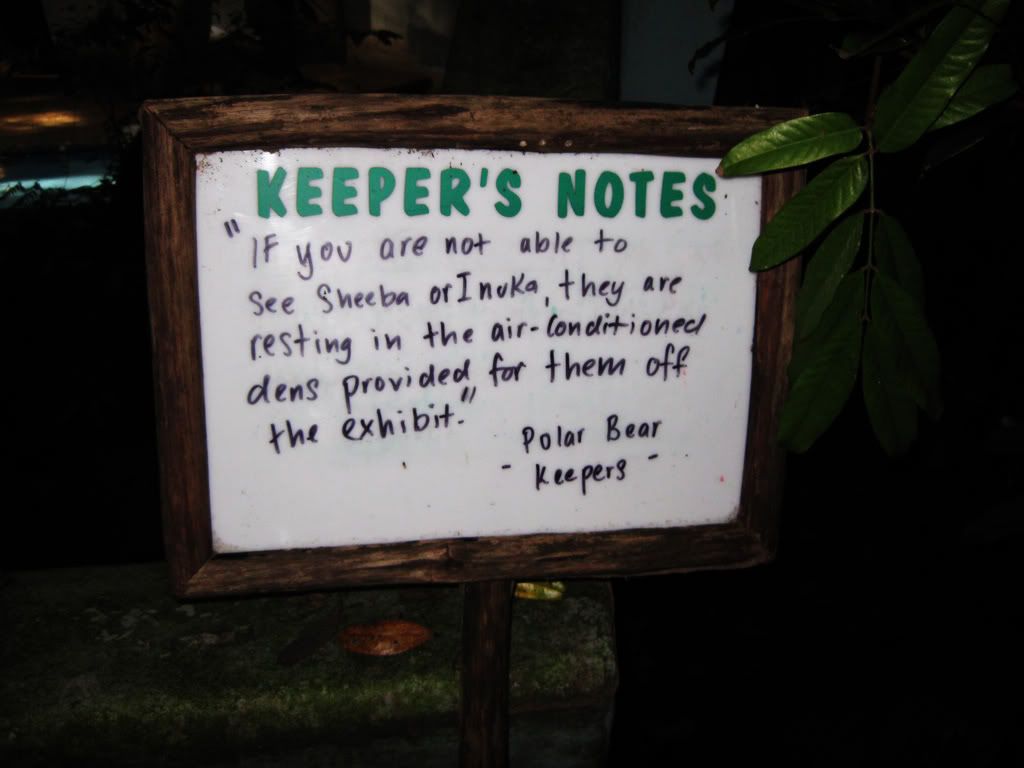 KEEPER'S NOTES
"If you are not able to
see Sheeba or Inuka, they are
resting in the air-conditioned
dens provided for them off
the exhibit."
Polar Bear
- Keepers -